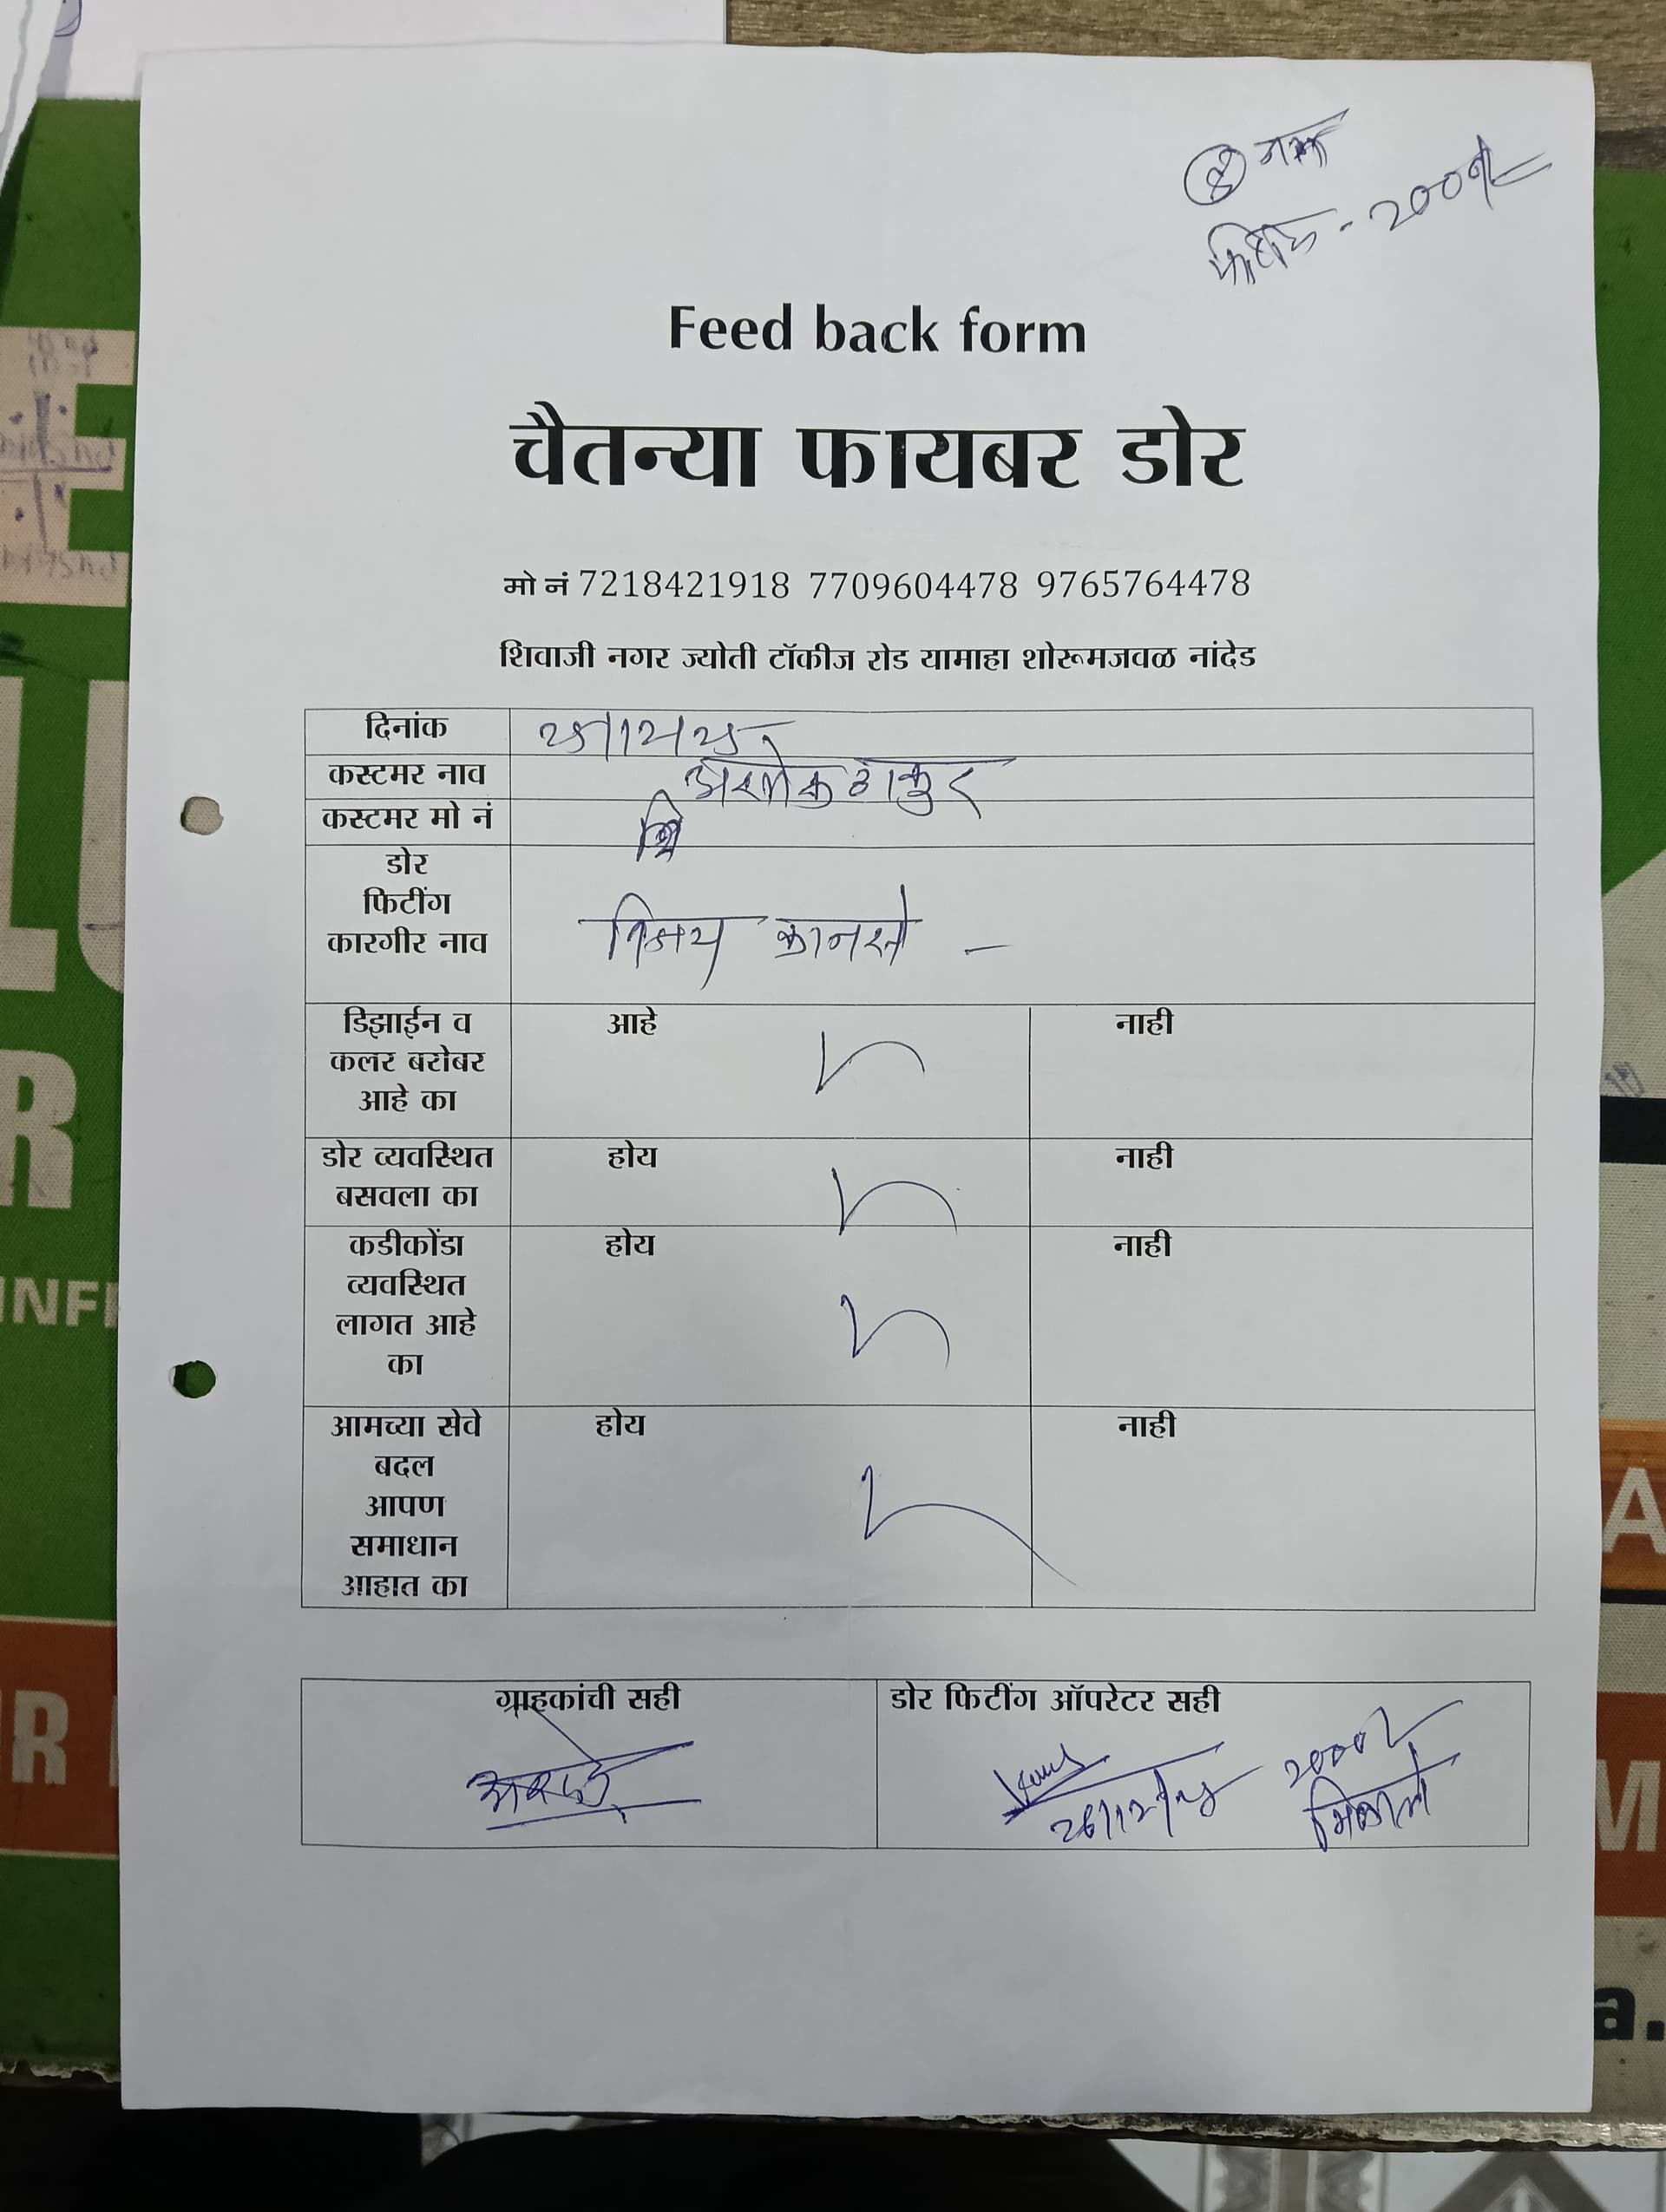 फिटिंग - 2000/-
Feed back form
चैतन्या फायबर डोर
मो नं 7218421918 7709604478 9765764478
शिवाजी नगर ज्योती टॉकीज रोड यामाहा शोरूमजवळ नांदेड
दिनांक
कस्टमर नाव अशोक ठाकुर
कस्टमर मो नं
डोर
फिटींग
कारगीर नाव
विजय कानसे
डिझाईन व
कलर बरोबर
आहे का
आहे
नाही
डोर व्यवस्थित
बसवला का
होय
नाही
कडीकोंडा
व्यवस्थित
लागत आहे
का
होय
नाही
आमच्या सेवे
बदल
आपण
समाधान
आहात का
होय
नाही
ग्राहकांची सही
डोर फिटींग ऑपरेटर सही
2000/-
मिळाले
INF